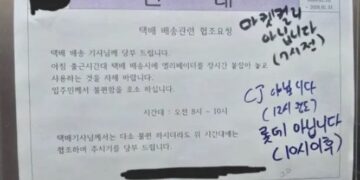 안 내
택배 배송관련 협조요청
택배 배송 기사님께 당부 드립니다.
아침 출근시간대 택배 배송시에 엘리베이터를 장시간 붙잡아 놓고
사용하는 것을 자제 바랍니다.
입주민께서 불편함을 호소 하십니다.
시간대 : 오전 8시 ~ 10시
택배기사님께서는 다소 불편 하시더라도 위 시간대에는
협조하여 주시기를 당부 드립니다.
마켓컬리
아닙니다
(7시전)
CJ 아닙니다
(12시 완료)
롯데 아닙니다
(10시이후)